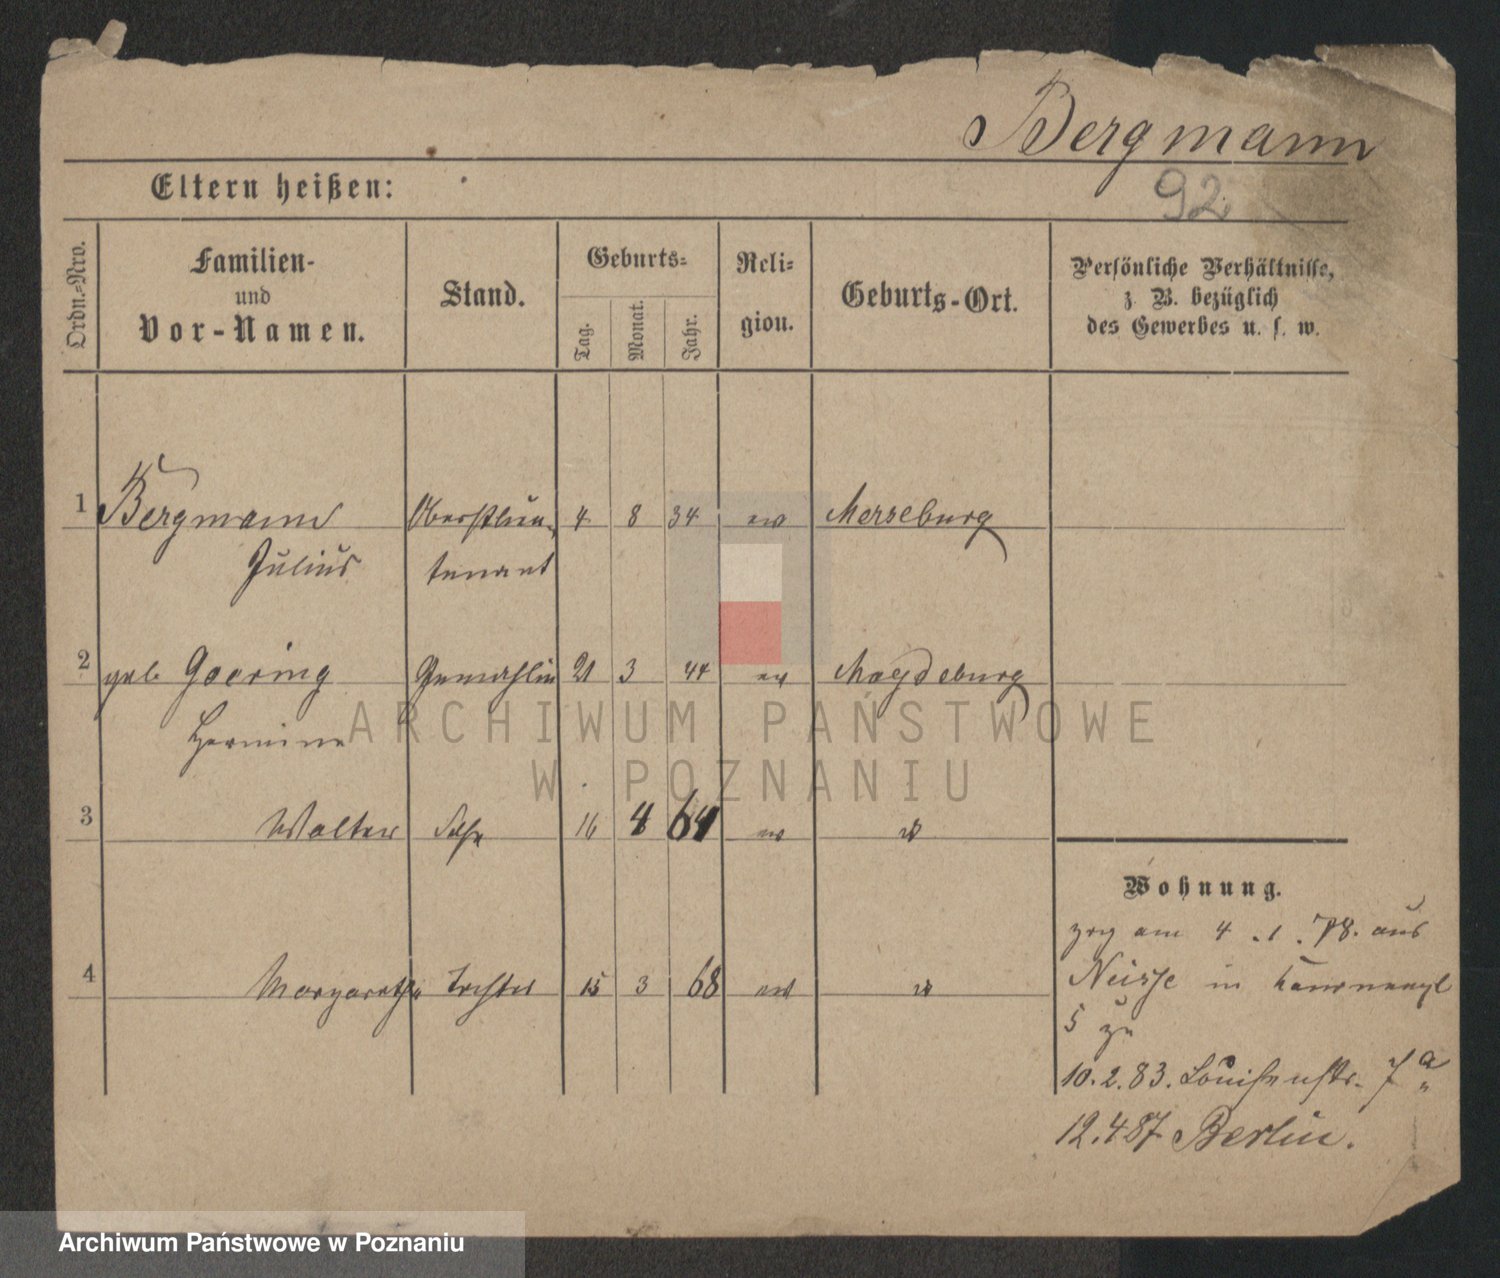 Bergmann
92
Eltern heißen:
Ordn.=Nro.
Familien-
und
Vor-Namen.
Stand.
Geburts=
Tag.
Monat.
Jahr.
Reli=
gion.
Geburts-Ort.
Persönliche Verhältnisse,
z. B. bezüglich
des Gewerbes u. s. w.
1 Bergmann Oberstlieu- 4 8 34 ev Merseburg
Julius tenant
2 geb Goering Gemahlin 21 3 44 ev Magdeburg
Hermine
3 Walter Sohn 16 4 64 ev
4 Margarethe Tochter 15 3 68 ev
Wohnung.
zog am 4.1.78. aus
Neisse in
5 zu
10.2.83. Louisenstr. 7 a
12.4 87 Berlin.
ARCHIWUM PAŃSTWOWE
W POZNANIU
Archiwum Państwowe w Poznaniu